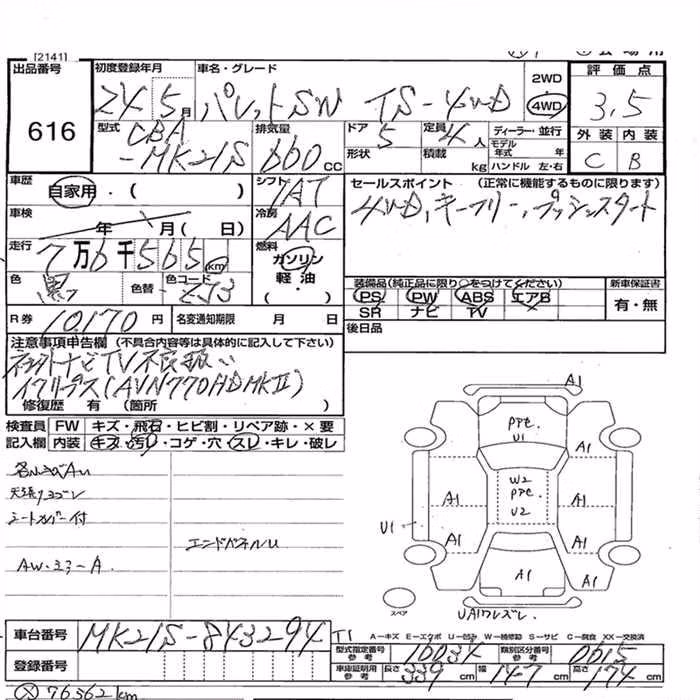 [2141]
出品番号
616
初度登録年月
24 5月
車名・グレード
パレットSW TS-4WD
2WD
4WD
評価点
3.5
外装 内装
C B
型式
CBA
-MK21S
排気量
660 cc
ドア 5
形状
定員 4人
積載 kg
ディーラー・並行
モデル年式 年
ハンドル 左・右
車歴
自家用・( )
シフト
IAT
車検
年 月( 日)
冷房
AAC
走行
7万6千565km
燃料
ガソリン
軽油
・( )
色
黒
色替
色コード
ZJ3
R券 10,170円
名変通知期限 月 日
セールスポイント (正常に機能するものに限ります)
4WD、キーフリー、プッシュスタート
装備品(純正品に限り○をつけてください)
PS PW ABS エアB
SR ナビ TV
新車保証書
有・無
後日品
注意事項申告欄 (不具合内容等は具体的に記入して下さい)
ナビTV不良扱い
イクリプス(AVN770HDMKⅡ)
修復歴 有 (箇所 )
検査員記入欄
FW キズ・飛石・ヒビ割・リペア跡・×要
内装 キズ・汚レ・コゲ・穴・スレ・キレ・破レ
シートカバー付
エンドパネルU
AW・ミラーA
A1
PPTE
U1
A1
A1
W2
PPTE
U2
A1
A1
U1
A1
A1
A1
スペア
UA1ワレズレ
T1
車台番号 MK21S-843294
登録番号
A－キズ E－エクボ U－凹ミ W－補修跡 S－サビ C－腐食 XX－交換済
型式指定番号参考 16034
類別区分番号参考 0615
車庫証明用参考 長さ 339cm 幅 147cm 高さ 174cm
76562km